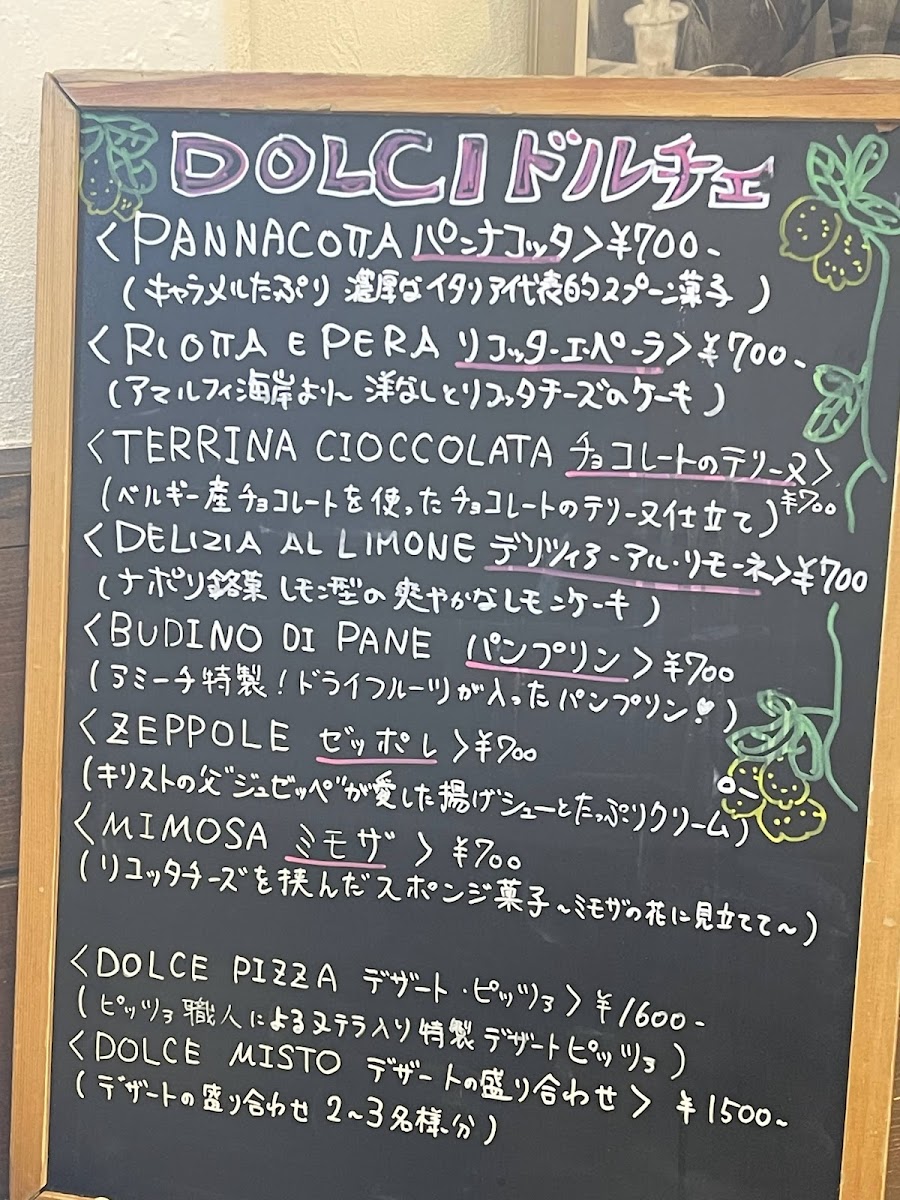 DOLCI ドルチェ
<PANNACOTTA パンナコッタ>¥700-
(キャラメルたぷり 濃厚なイタリア代表的スプーン菓子)
<RIOTTA E PERA リコッタ・エ・ペーラ>¥700-
(アマルフィ海岸より〜 洋なしとリコッタチーズのケーキ)
<TERRINA CIOCCOLATA チョコレートのテリーヌ>
¥700
(ベルギー産チョコレートを使ったチョコレートのテリーヌ仕立て)
<DELIZIA AL LIMONE デリツィア・アル・リモーネ>¥700
(ナポリ銘菓 レモン型の爽やかなレモンケーキ)
<BUDINO DI PANE パンプリン>¥700
(アミーチ特製!ドライフルーツが入ったパンプリン♡)
<ZEPPOLE ゼッポレ>¥700
(キリストの父"ジュゼッペ"が愛した揚げシューとたっぷりクリーム)
<MIMOSA ミモザ>¥700
(リコッタチーズを挟んだスポンジ菓子〜ミモザの花に見立てて〜)
<DOLCE PIZZA デザート・ピッツァ>¥1600-
(ピッツァ職人によるヌテラ入り特製デザートピッツァ)
<DOLCE MISTO デザートの盛り合わせ>¥1500-
(デザートの盛り合わせ 2〜3名様分)